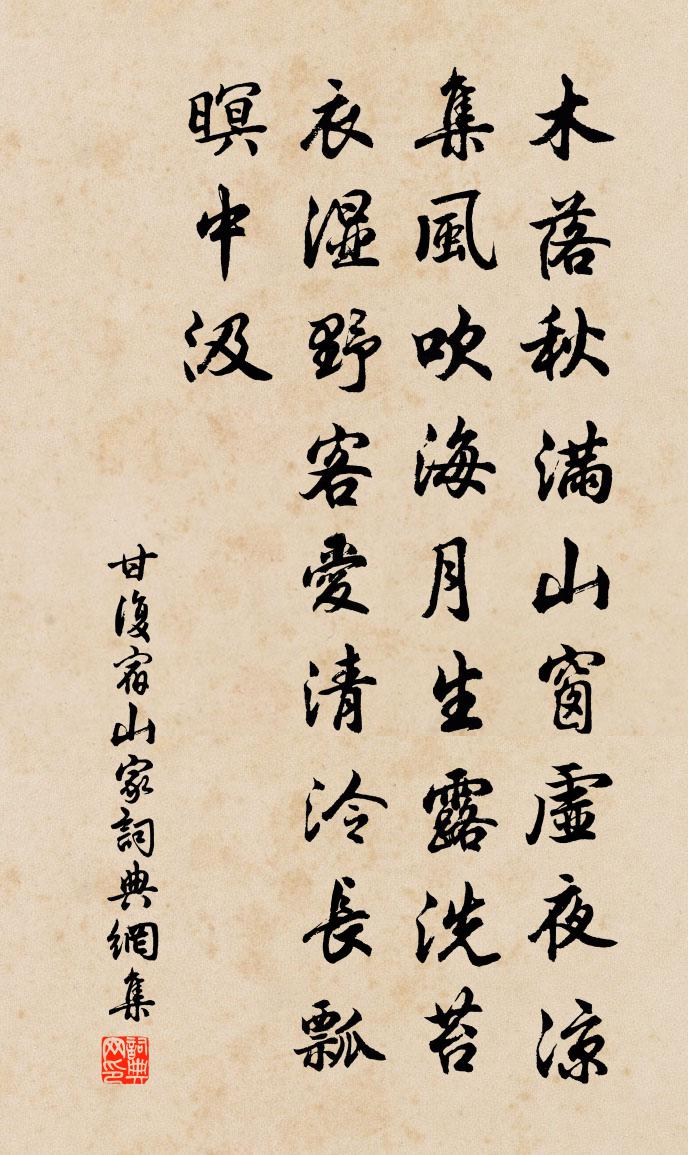 木落秋滿山窗虛夜涼
集風吹海月生露洗苔
衣濕野客愛清泠長瓢
暝中汲
甘復宿山家詞典網集
詞典网印